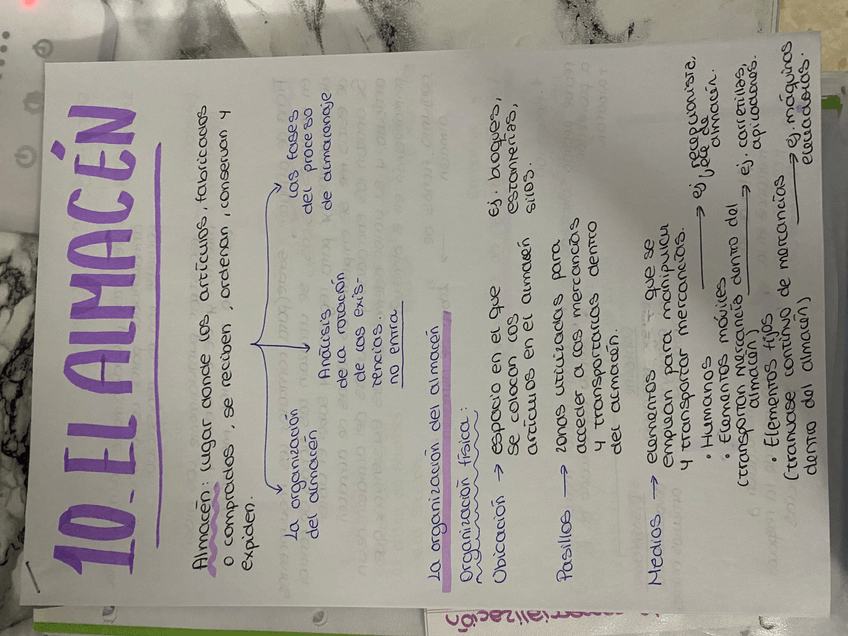 10. EL ALMACÉN
Almacén: lugar donde los artículos, fabricados
o comprados, se reciben, ordenan, conservan y
expiden.
La organización
del almacén
Análisis
de la rotación
de las exis-
tencias.
no entra
Las fases
del proceso
de almacenaje
La organización del almacén
Organización física:
Ubicación → espacio en el que
se colocan los
artículos en el almacén
ej. bloques,
estanterías,
silos.
Pasillos → zonas utilizadas para
acceder a las mercancías
y transportarlas dentro
del almacén.
Medios → elementos que se
emplean para manipular
y transportar mercancías.
• Humanos → ej. recepcionista,
jefe de
almacén.
• Elementos móviles
(transportan mercancía dentro del
almacén) → ej. carretillas,
apiladores.
• Elementos fijos
(tranvase continuo de mercancías
dentro del almacén) → ej. máquinas
elevadoras.
comercialización